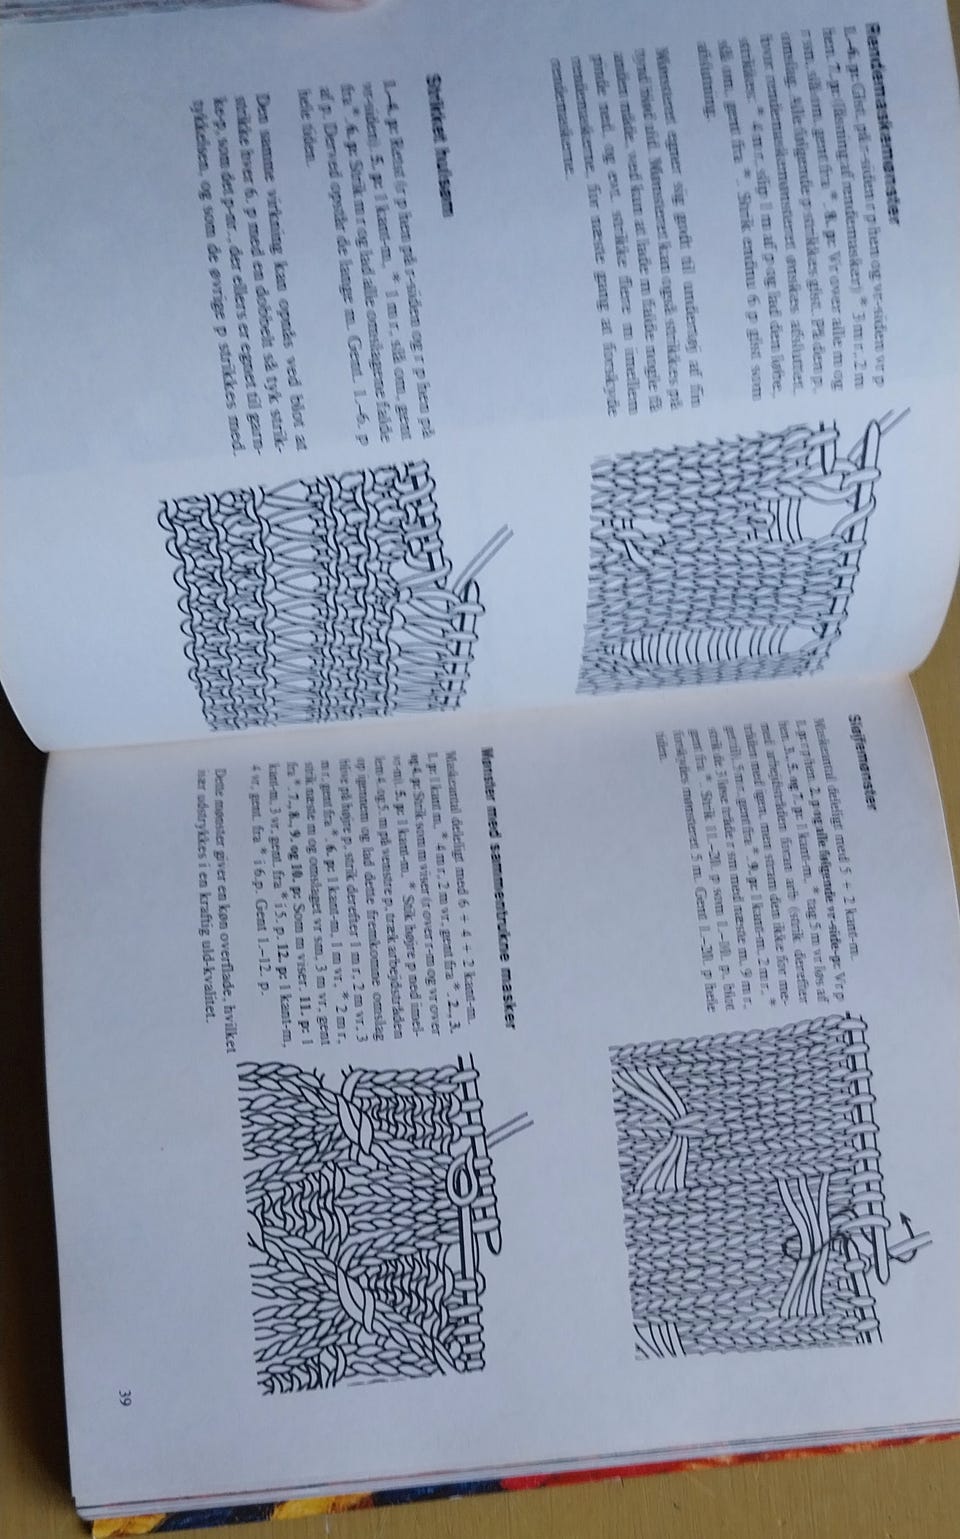 Rendemaskemønster
1.-6. p: Glst, på r-siden r p hen og vr-siden vr p
hen. 7. p: (åbning af rendemasker) * 3 m r, 2 m
r sm, slå om, gent fra *. 8. p: Vr over alle m og
omslag. Alle følgende p strikkes glst. På den p,
hvor rendemaskemønsteret ønskes afsluttet,
strikkes: * 4 m r, slip 1 m af p og lad den løbe,
slå om, gent fra *. Strik endnu 6 p glst som
afslutning.
Mønsteret egner sig godt til undertøj af fin
tynd blød tråd. Mønsteret kan også strikkes på
anden måde, ved kun at lade m falde nogle få
pinde ned, og evt. strikke flere m imellem
rendemaskerne, for næste gang at forskyde
rendemaskerne.
Strikket hulsøm
1.-4. p: Retst (r p hen på r-siden og r p hen på
vr-siden). 5. p: 1 kant-m, * 1 m r, slå om, gent
fra *. 6. p: Strik m r og lad alle omslagene falde
af p. Derved opstår de lange m. Gent. 1.-6. p
hele tiden.
Den samme virkning kan opnås ved blot at
strikke hver 6. p med en dobbelt så tyk strik-
ke-p, som det p-nr., der ellers er egnet til garn-
tykkelsen, og som de øvrige p strikkes med.
Sløjfemønster
Maskeantal deleligt med 5 + 2 kant-m.
1. p: r p hen. 2. p og alle følgende vr-side-p: Vr p
hen. 3., 5. og 7. p: 1 kant-m, * tag 5 m vr løs af
med arbejdstråden foran arb (strik derefter
tråden med igen, men stram den ikke for me-
get!), 5 m r, gent fra *. 9. p: 1 kant-m, 2 m r, *
strik de 3 løse tråde r sm med næste m, 9 m r,
gent fra *. Strik 11.-20. p som 1.-10. p, blot
forskydes mønsteret 5 m. Gent 1.-20. p hele
tiden.
Mønster med sammentrukne masker
Maskeantal deleligt med 6 + 4 + 2 kant-m.
1. p: 1 kant-m, * 4 m r, 2 m vr, gent fra *. 2., 3.
og 4. p: Strik som m viser (r over r-m og vr over
vr-m). 5. p: 1 kant-m, * Stik højre p ned imel-
lem 4. og 5. m på venstre p, træk arbejdstråden
op igennem og lad dette fremkomne omslag
blive på højre p, strik derefter 1 m r, 2 m vr, 3
m r, gent fra *. 6. p: 1 kant-m, 1 m vr, * 2 m r,
strik næste m og omslaget vr sm, 3 m vr, gent
fra *. 7., 8., 9. og 10. p: Som m viser. 11. p: 1
kant-m, 3 vr, gent fra * i 5. p. 12. p: 1 kant-m,
4 vr, gent. fra * i 6. p. Gent 1.-12. p.
Dette mønster giver en køn overflade, hvilket
især udstrykkes i en kraftig uld-kvalitet.
39